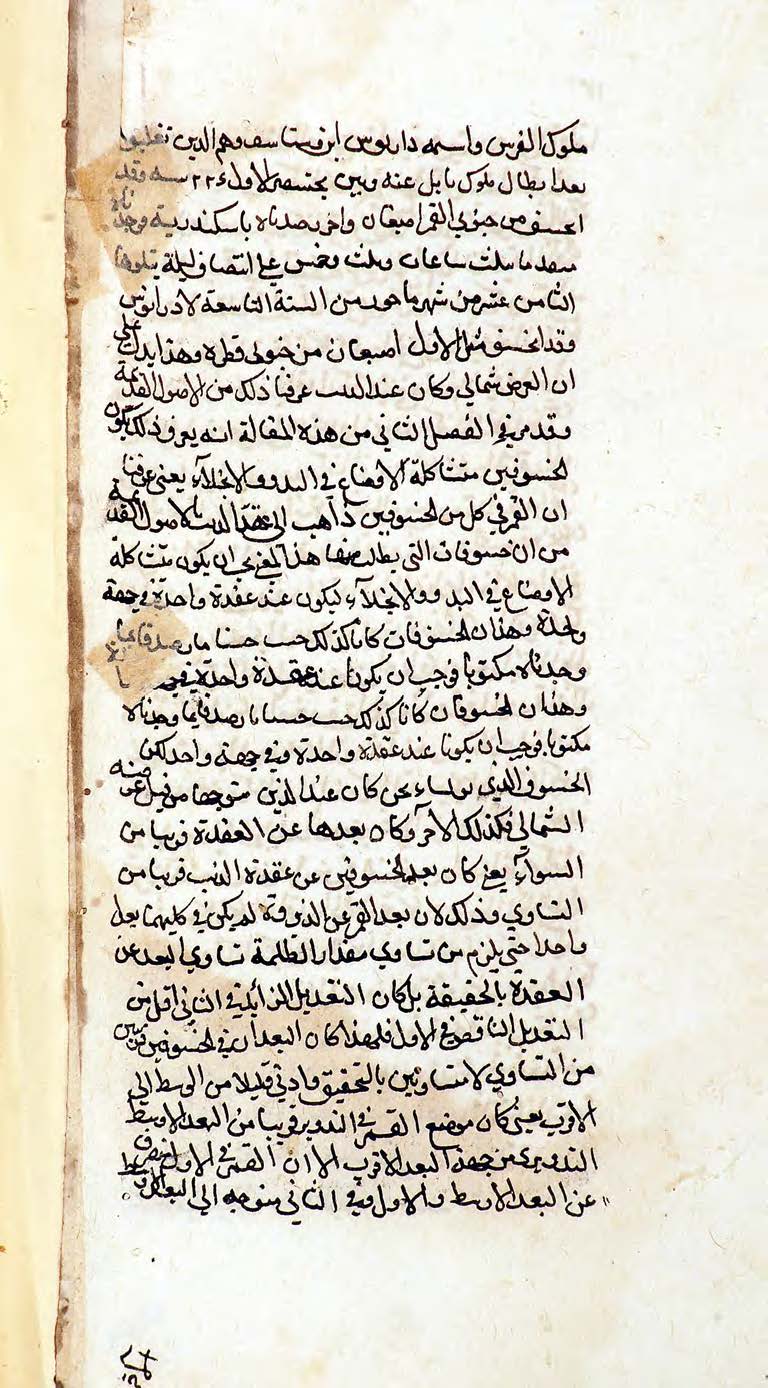 ملوك الفرس واسمه داريوس ابن وستاسف وهم الذين تغلبوا
بعد ابطال ملوك بابل عنه وبين بختنصر الاول ٢٢٤ سنه وقد
انخسف من جنوبي القمر اصبعان واخر رصدناه باسكندرية وجدناه
بعد ما ثلث ساعات وثلث وخمس على انتصاف ليلة يتلوها
الثامن عشر من شهر ماخون من السنة التاسعة لادريانوس
وقد انخسف مثل الاول اصبعان من جنوبي قطره وهذا يدل على
ان العرض شمالي وكان عند الذنب عرفنا ذلك من الاصول القديمة
وقد مر في الفصل الثاني من هذه المقالة انه يعرف ذلك بكون
الخسوفين متشاكلة الاوضاع في البدو والانجلآء يعني عرفنا
ان القمر في كل من الخسوفين ذاهب الى عقدة الذنب بالاصول القديمة
من ان خسوفات التي يطلب منها هذا المعنى يجب ان يكون متشاكلة
الاوضاع في البدو والانجلآء ليكون عند عقدة واحدة في جهة
واحدة وهذان الخسوفان كانا كذلك حسب حسابنا مارصد فايما
وجدناه مكتوبا فوجب ان يكونا عند عقدة واحدة في
وهذان الخسوفان كانا كذلك حسب حسابنا مارصد فايما وجدناه
مكتوبا فوجب ان يكونا عند عقدة واحدة وفي جهة واحد لكن
الخسوف الذي كان عند الذنب متوجها من قبل عرضه
الشمالي فكذلك الآخر وكان بعدها عن العقدة قريبا من
السوآء يعني كان بعد الخسوفين عن عقدة الذنب قريبا من
التساوي وذلك لان بعد القمر عن الذروة لم يكن في كليهما بعدا
واحدا حتى يلزم من تساوي مقدار الظلمة تساوي البعد عن
العقدة بالحقيقة بل كان التعديل الزائد في الثاني اقل من
التعديل الناقص في الاول فلهذا كان البعدان في الخسوفين قريبين
من التساوي لا متساويين بالتحقيق وادنى قليلا من الوسط الى
الاقرب يعني كان موضع القمر في التدوير قريبا من البعد الاوسط
التدويري من جهة البعد الاقرب الا ان القمر في الاول منصرف
عن البعد الاوسط والاول وفي الثاني متوجه الى البعد الاوسط